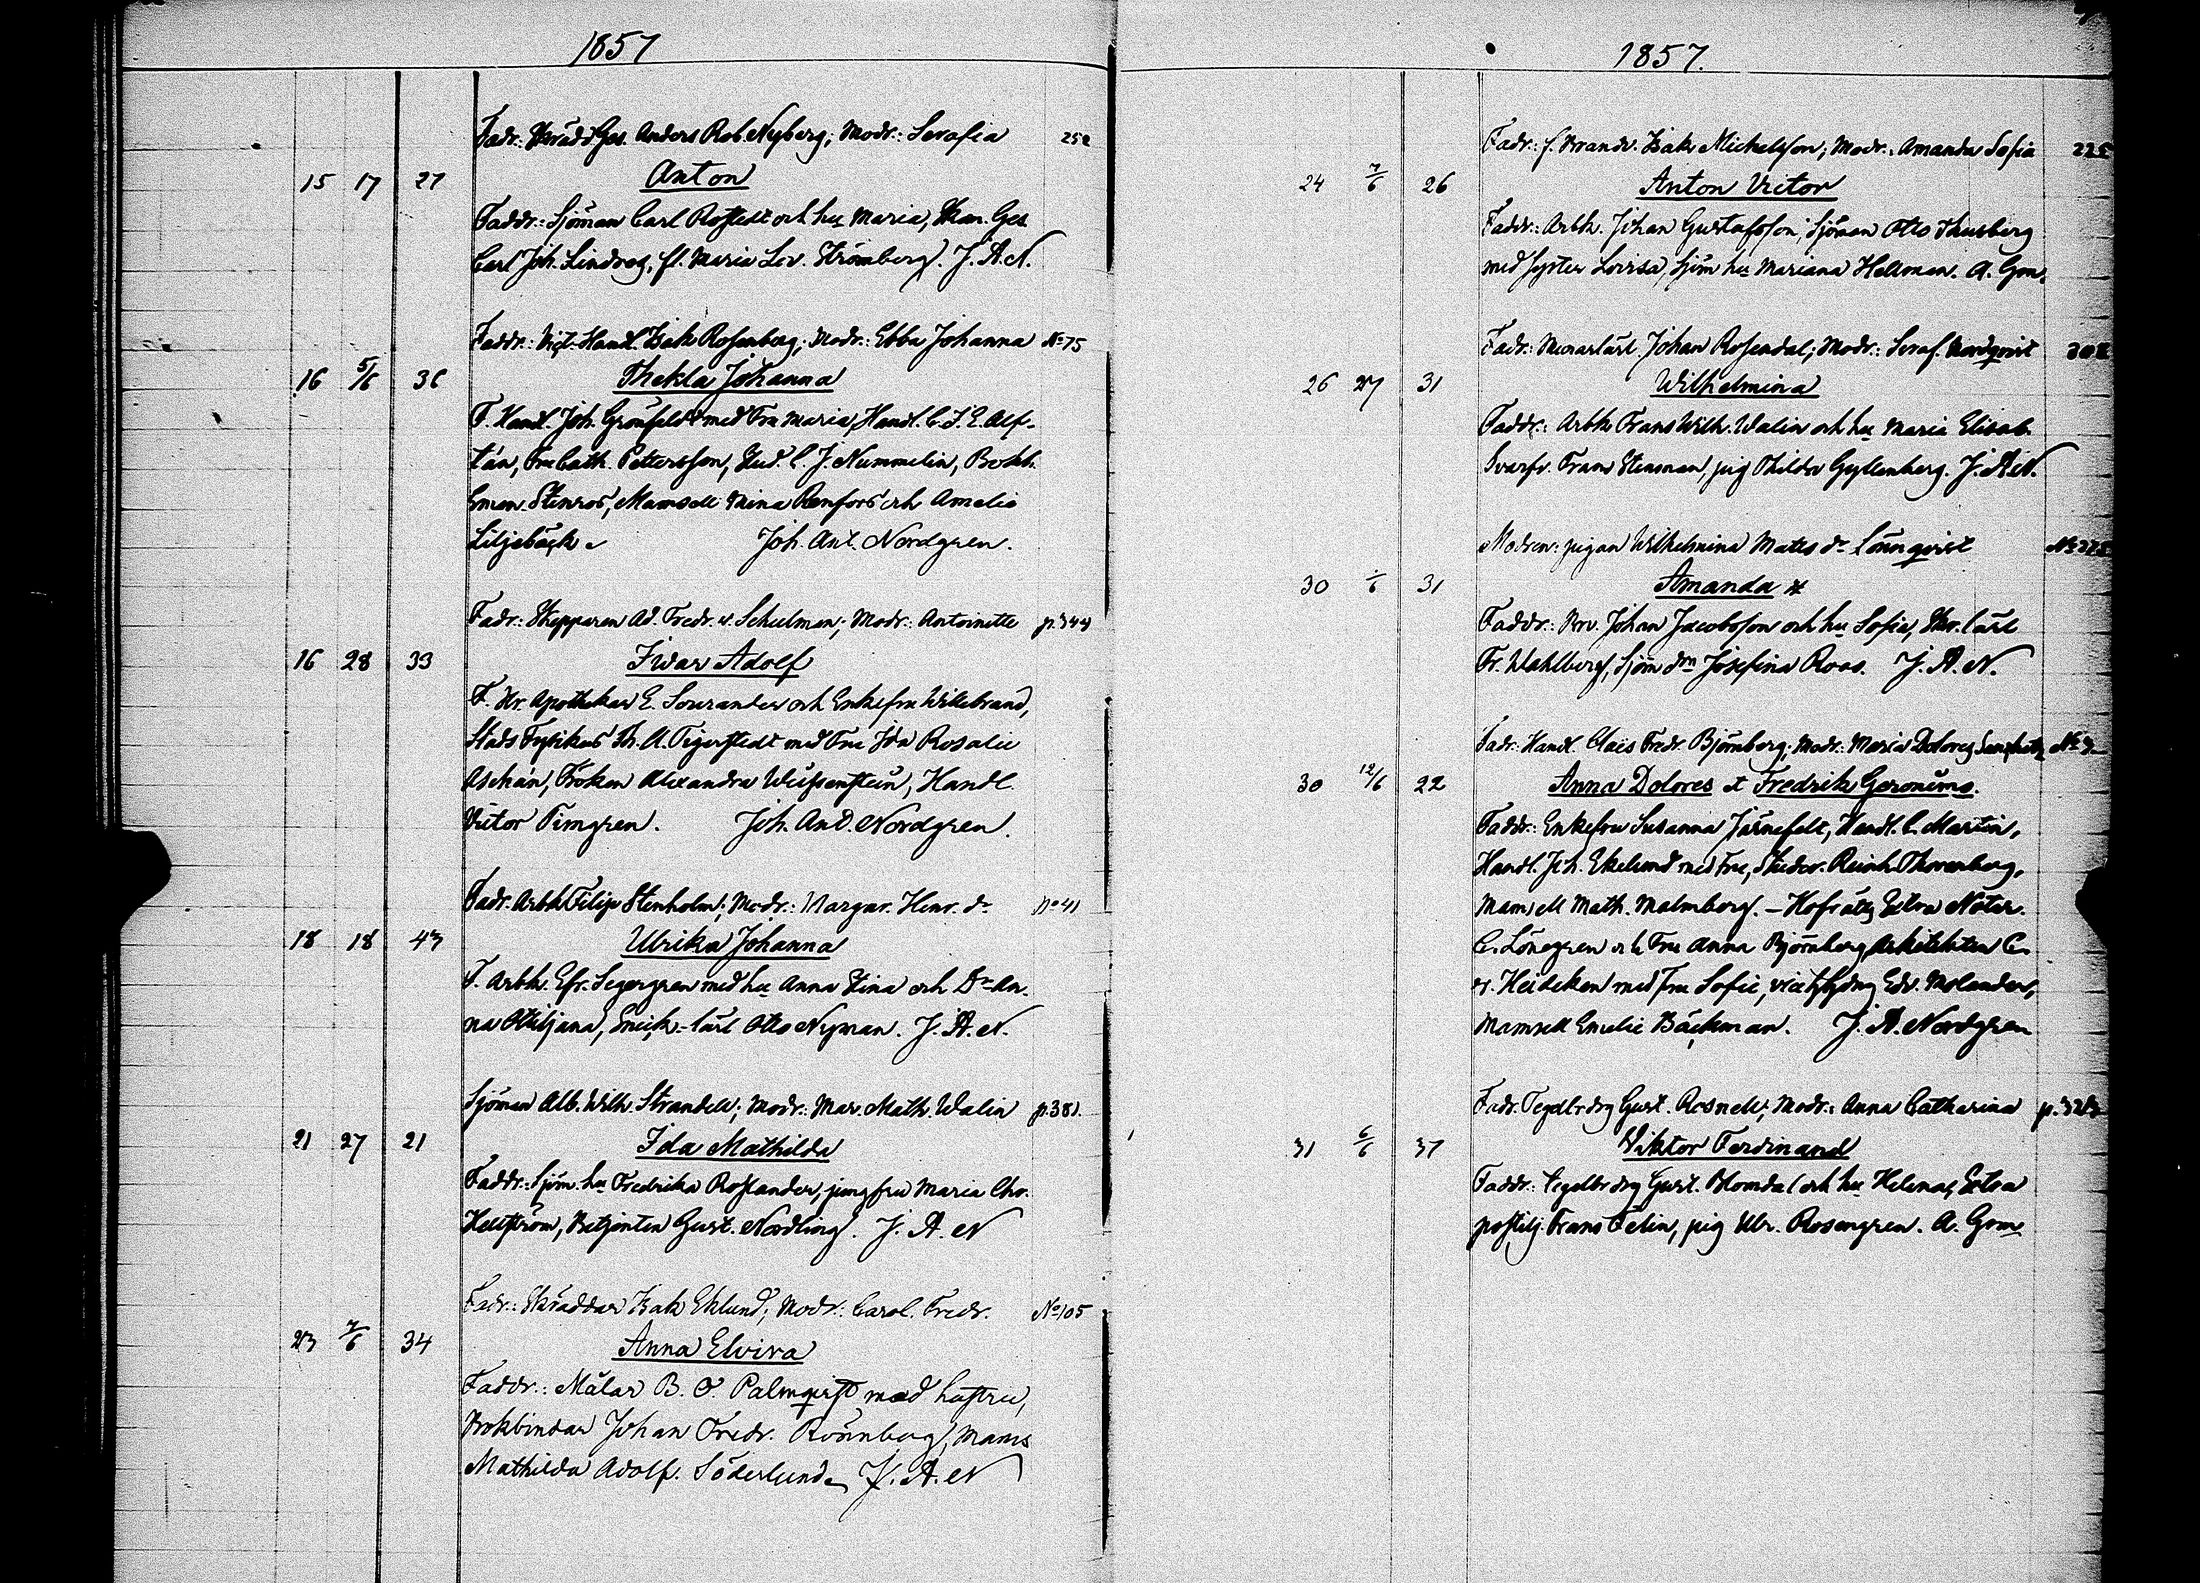 1857
Fadr: Skrädd. Ges. Anders Rob. Nyberg; Modr: Serafia 252
15 17 27 Anton
Faddr: Sjöman Carl Rosstedt och hu Maria, Ges.
Carl Joh. Lindveg, fl. Maria Lov. Strömberg. J. A. N.
Faddr: Vict. Handl. Isak Rosenberg, Modr: Ebba Johanna No 75
16 5/6 36 Thekla Johanna
F. Handl. Joh. Grönfeldt med Fru Maria, Handl. C. I. E. Alf-
tán, Fru Cath. Pettersson, Stud. C. J. Nummelin, Bokh.
Stenros, Mamsell Mina Renfors och Amelie
Liljebäck. Joh. Ant. Nordgren.
Fadr: Skepparen Ad. Fredr. v. Schulman; Modr: Antoinette p. 344
16 28 33 Iwar Adolf
F. Hr Apothekar E. Sourander och Enkefru Willebrand,
Stads Fysikus Th. A. Tigerstedt med Fru Ida Rosalie
Aschán, Fröken Alexandra Weissenstein, Handl.
Victor Timgren. Joh. And. Nordgren.
Fadr. Arbk Filip Stenholm; Modr: Margar. Henr. dr No 41
18 18 43 Ulrika Johanna
F. Arbk. Efr. Segergren med hu Anna Stina och Dr An-
na Ottiljana, lärl Otto Nyman. J. A. N.
Sjöman Alb. Wilh. Strandell; Modr: Mar. Math. Walin p. 381.
21 27 21 Ida Mathilda
Faddr: Sjöm. hu Fredrika Roslander, jungfru Maria Chr.
Hellström, Betjenten Gust. Nordling. J. A. N
Fadr: Skräddar Isak Eklund; Modr: Carol. Fredr. No 105
23 7/6 34 Anna Elvira
Faddr: Målar B. O. Palmqvist med hustru,
Bokbindar Johan Fredr. Rönnberg, Mams
Mathilda Adolf. Söderlund. J. A. N
1857.
Fadr: f. Isak Michelsson; Modr: Amanda Sofia 225
24 7/6 26 Anton Victor
Faddr: Arbk. Johan Gustafsson, Sjöman Otto Thusberg
med syster Lovisa, Sjöm hu Mariana Hellman. A. Gon.
Fadr: Murarlärl Johan Rosendal; Modr: Seraf. Nordqvist
26 27 31 Wilhelmina
Faddr: Arbk Frans Wilh. Walin och hu Maria Elisab.
Svarfv. Frans Stensman, pig Thilda Gyllenberg. J. A. N.
Modren: pigan Wilhelmina Matts dr Lönnqvist
30 /6 31 Amanda
Faddr: Johan Jacobsson och hu Sofia, lärl
Fr. Wahlberg, Sjöm drn Josefina Roos. J. A. N.
Fadr: Handl. Claës Fredr. Björnberg; Modr: Maria Dolores
30 12/6 22 Anna Dolores et Fredrik Geronimo.
Faddr: Enkefru Susanna Järnefelt, Handl. C. Martin,
Handl. Joh. Ekelund med Fru, Reinh. Thorenberg,
Mamsell Math. Malmberg. – Hofrätts Extra Notar.
C. Lönegren och Fru Anna Björnberg, Arkitekten C.
v. Heideken med Fru Sofie, Edv. Molander,
Mamsell Emelie Bäckman. J. A. Nordgren
Fadr: Tegelbr drg Gust. Rosnell; Modr: Anna Catharina
31 6/6 37 Viktor Ferdinand
Faddr: Tegelbr drg Gust. Blomdal och hu Helena, Extra
postilj. Frans Felin, pig Ulr. Rosengren. A. Gon